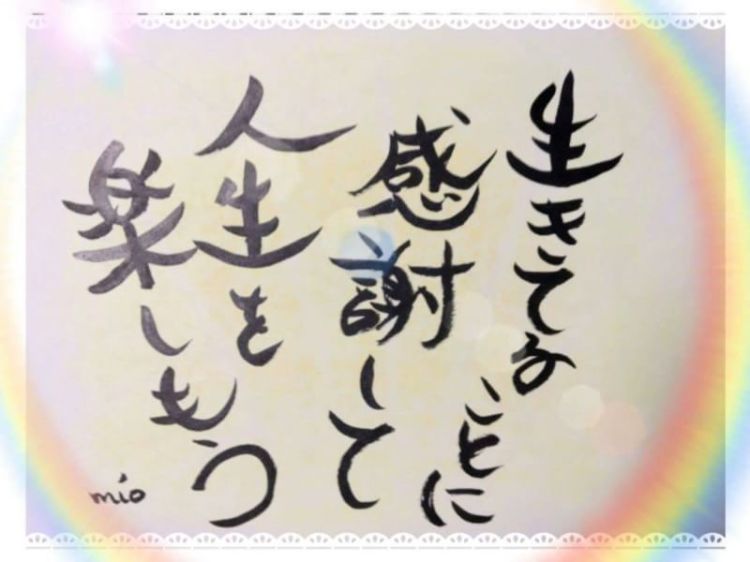 生きてる
ことに
感謝して
人生を
楽しもう
mio